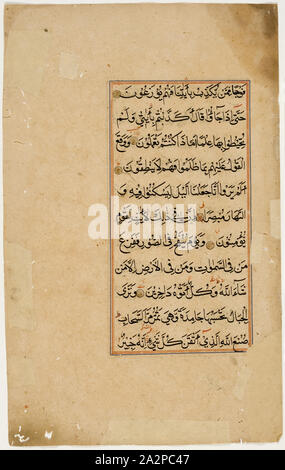 فوجا ممن يكذب بآياتنا فهم يوزعون
حتى إذا جاؤا قال أكذبتم بآياتي ولم
تحيطوا بها علما أما ذا كنتم تعملون ووقع
القول عليهم بما ظلموا فهم لا ينطقون
ألم يروا أنا جعلنا الليل ليسكنوا فيه و
النهار مبصرا إن في ذلك لآيات لقوم
يؤمنون ويوم ينفخ في الصور ففزع
من في السموات ومن في الأرض إلا من
شاء الله وكل أتوه داخرين وترى
الجبال تحسبها جامدة وهي تمر مر السحاب
صنع الله الذي أتقن كل شيء إنه خبير
alamy
Image ID: 2A2PC47
www.alamy.com